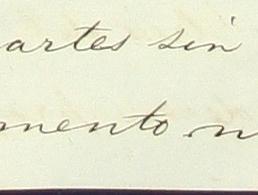 artes sin
mento n